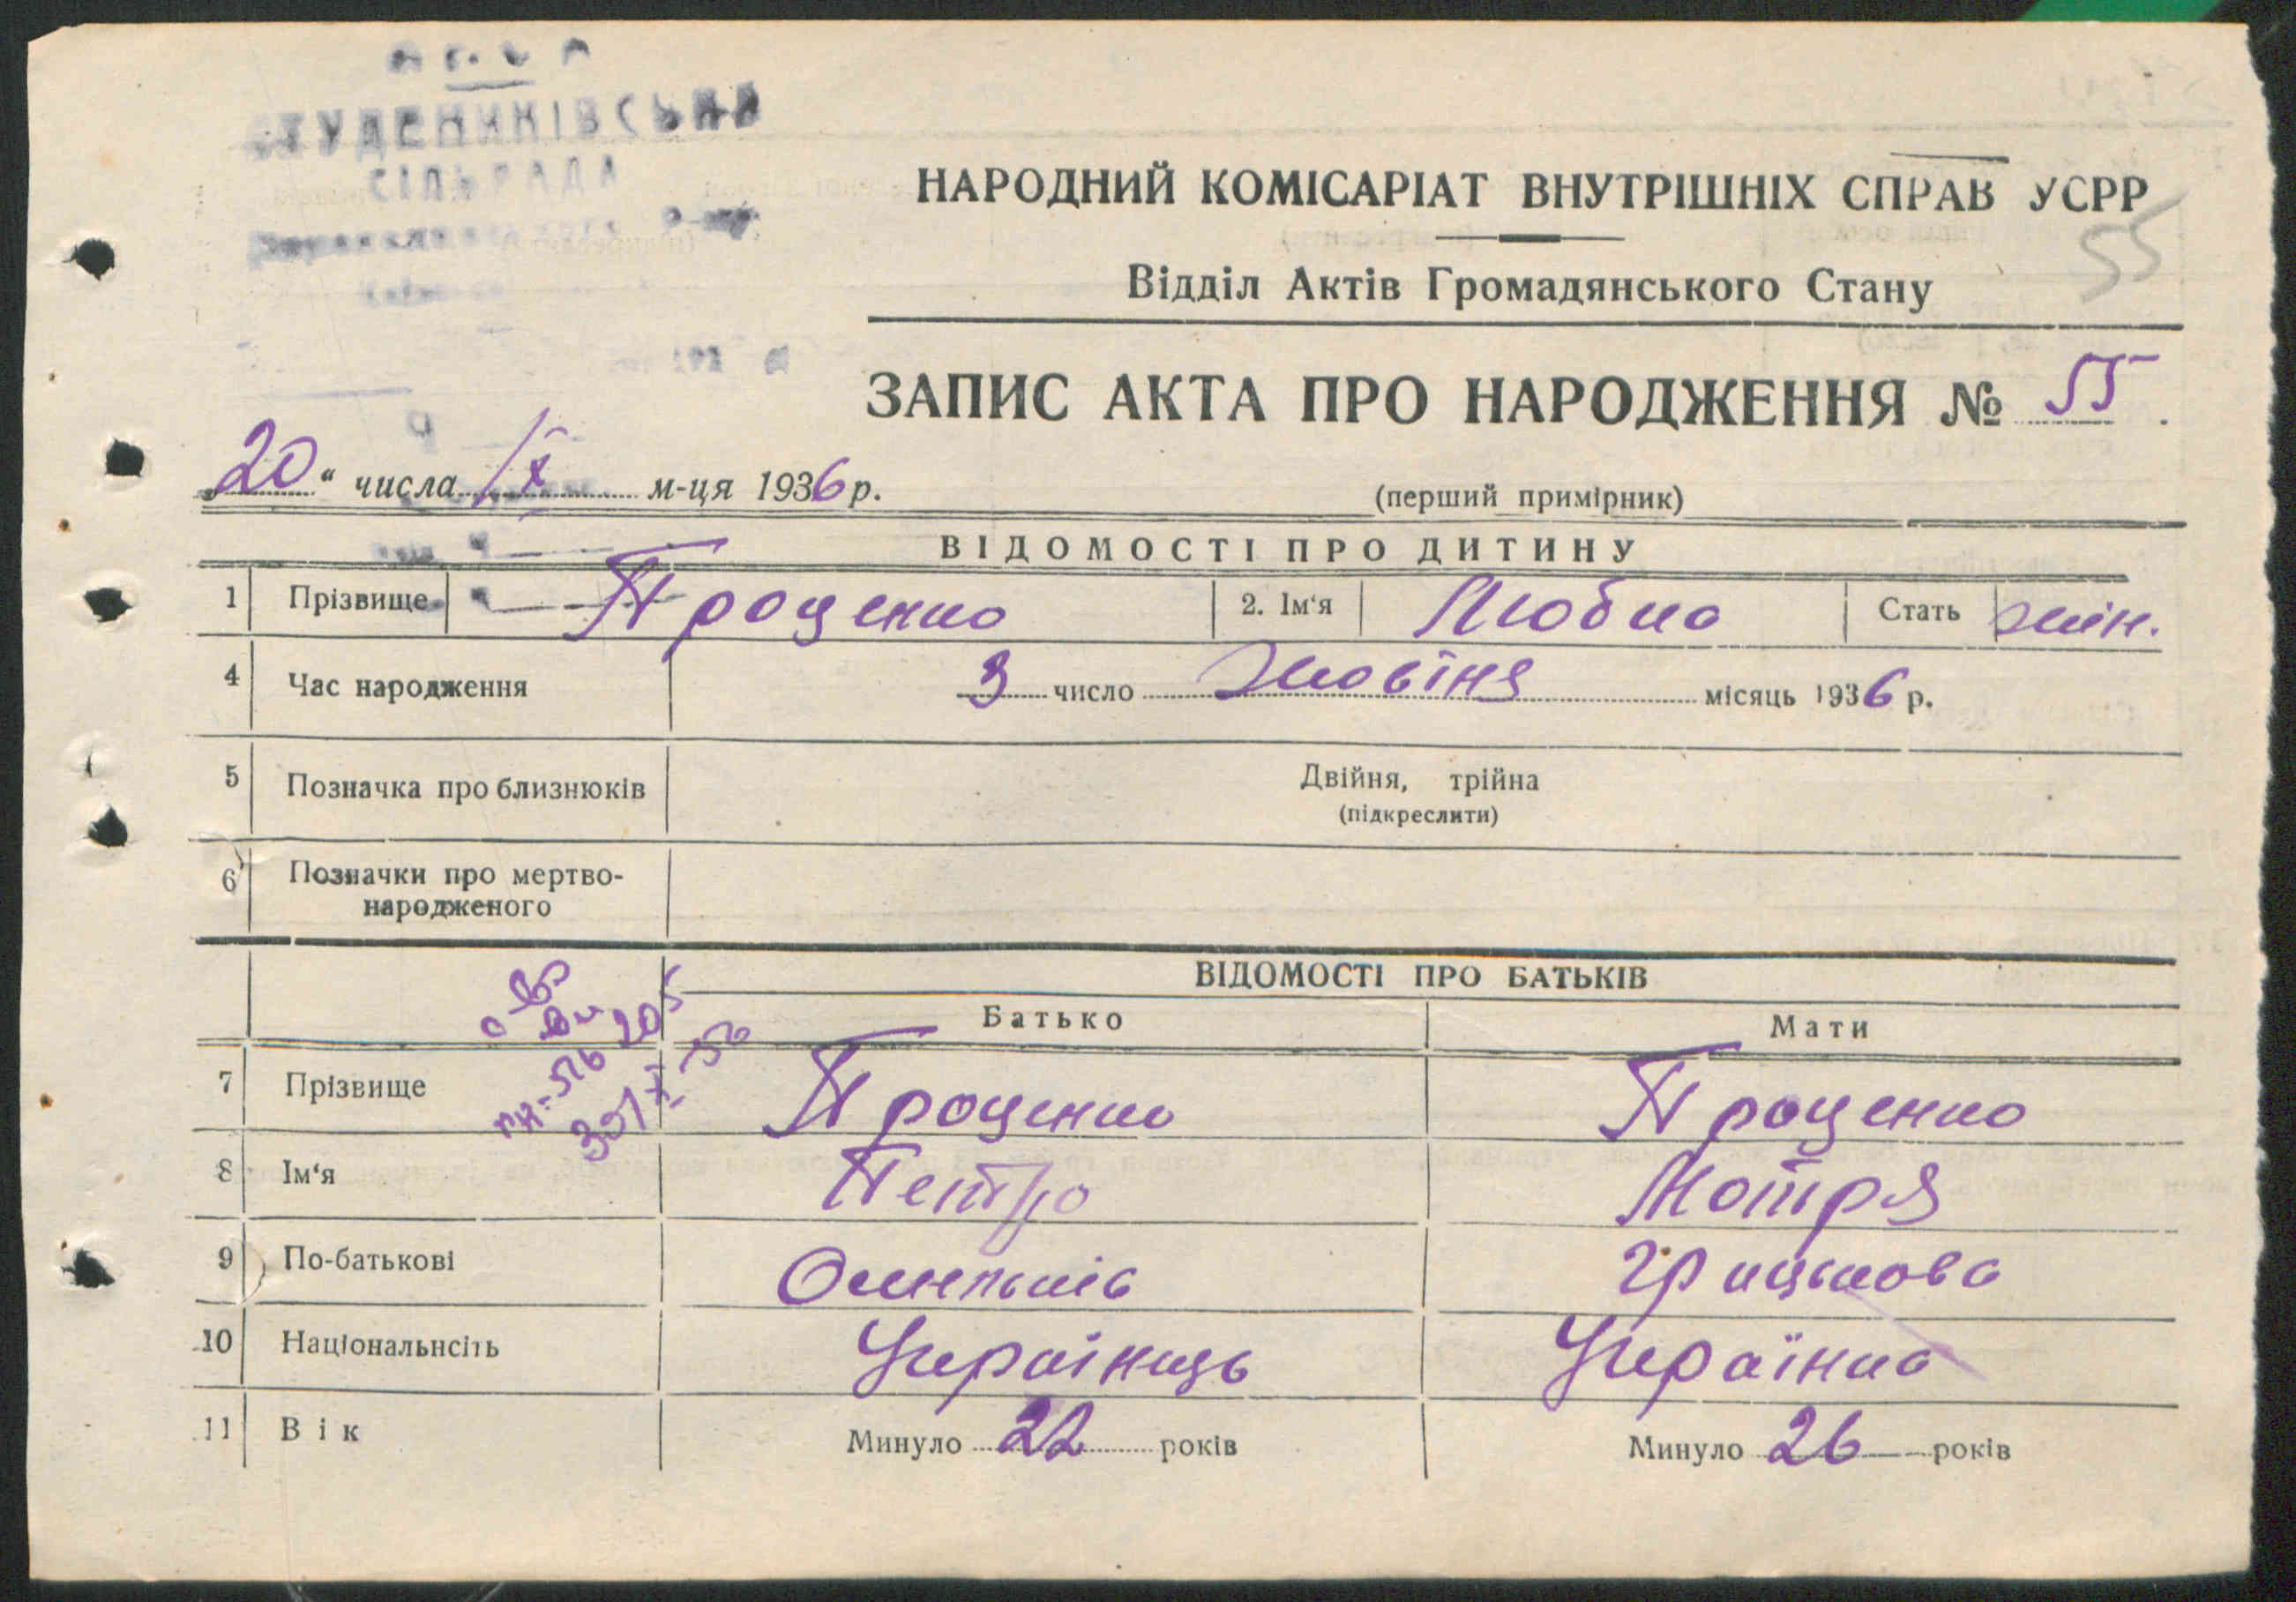 СТУДЕНИКІВСЬКА
СІЛЬРАДА
НАРОДНИЙ КОМІСАРІАТ ВНУТРІШНІХ СПРАВ УСРР
55
Відділ Актів Громадянського Стану
ЗАПИС АКТА ПРО НАРОДЖЕННЯ № 55.
„20“ числа IX м-ця 1936 р.
(перший примірник)
ВІДОМОСТІ ПРО ДИТИНУ
1 Прізвище Проценко 2. Ім‘я Любка Стать жін.
4 Час народження 3 число Жовтня місяць 1936 р.
5 Позначка про близнюків Двійня, трійна
(підкреслити)
6 Позначки про мертво-
народженого
ВІДОМОСТІ ПРО БАТЬКІВ
Батько Мати
7 Прізвище Проценко Проценко
8 Ім‘я Петро Мотря
9 По-батькові Грицькова
10 Національнсіть Українець Українка
11 Вік Минуло 22 років Минуло 26 років